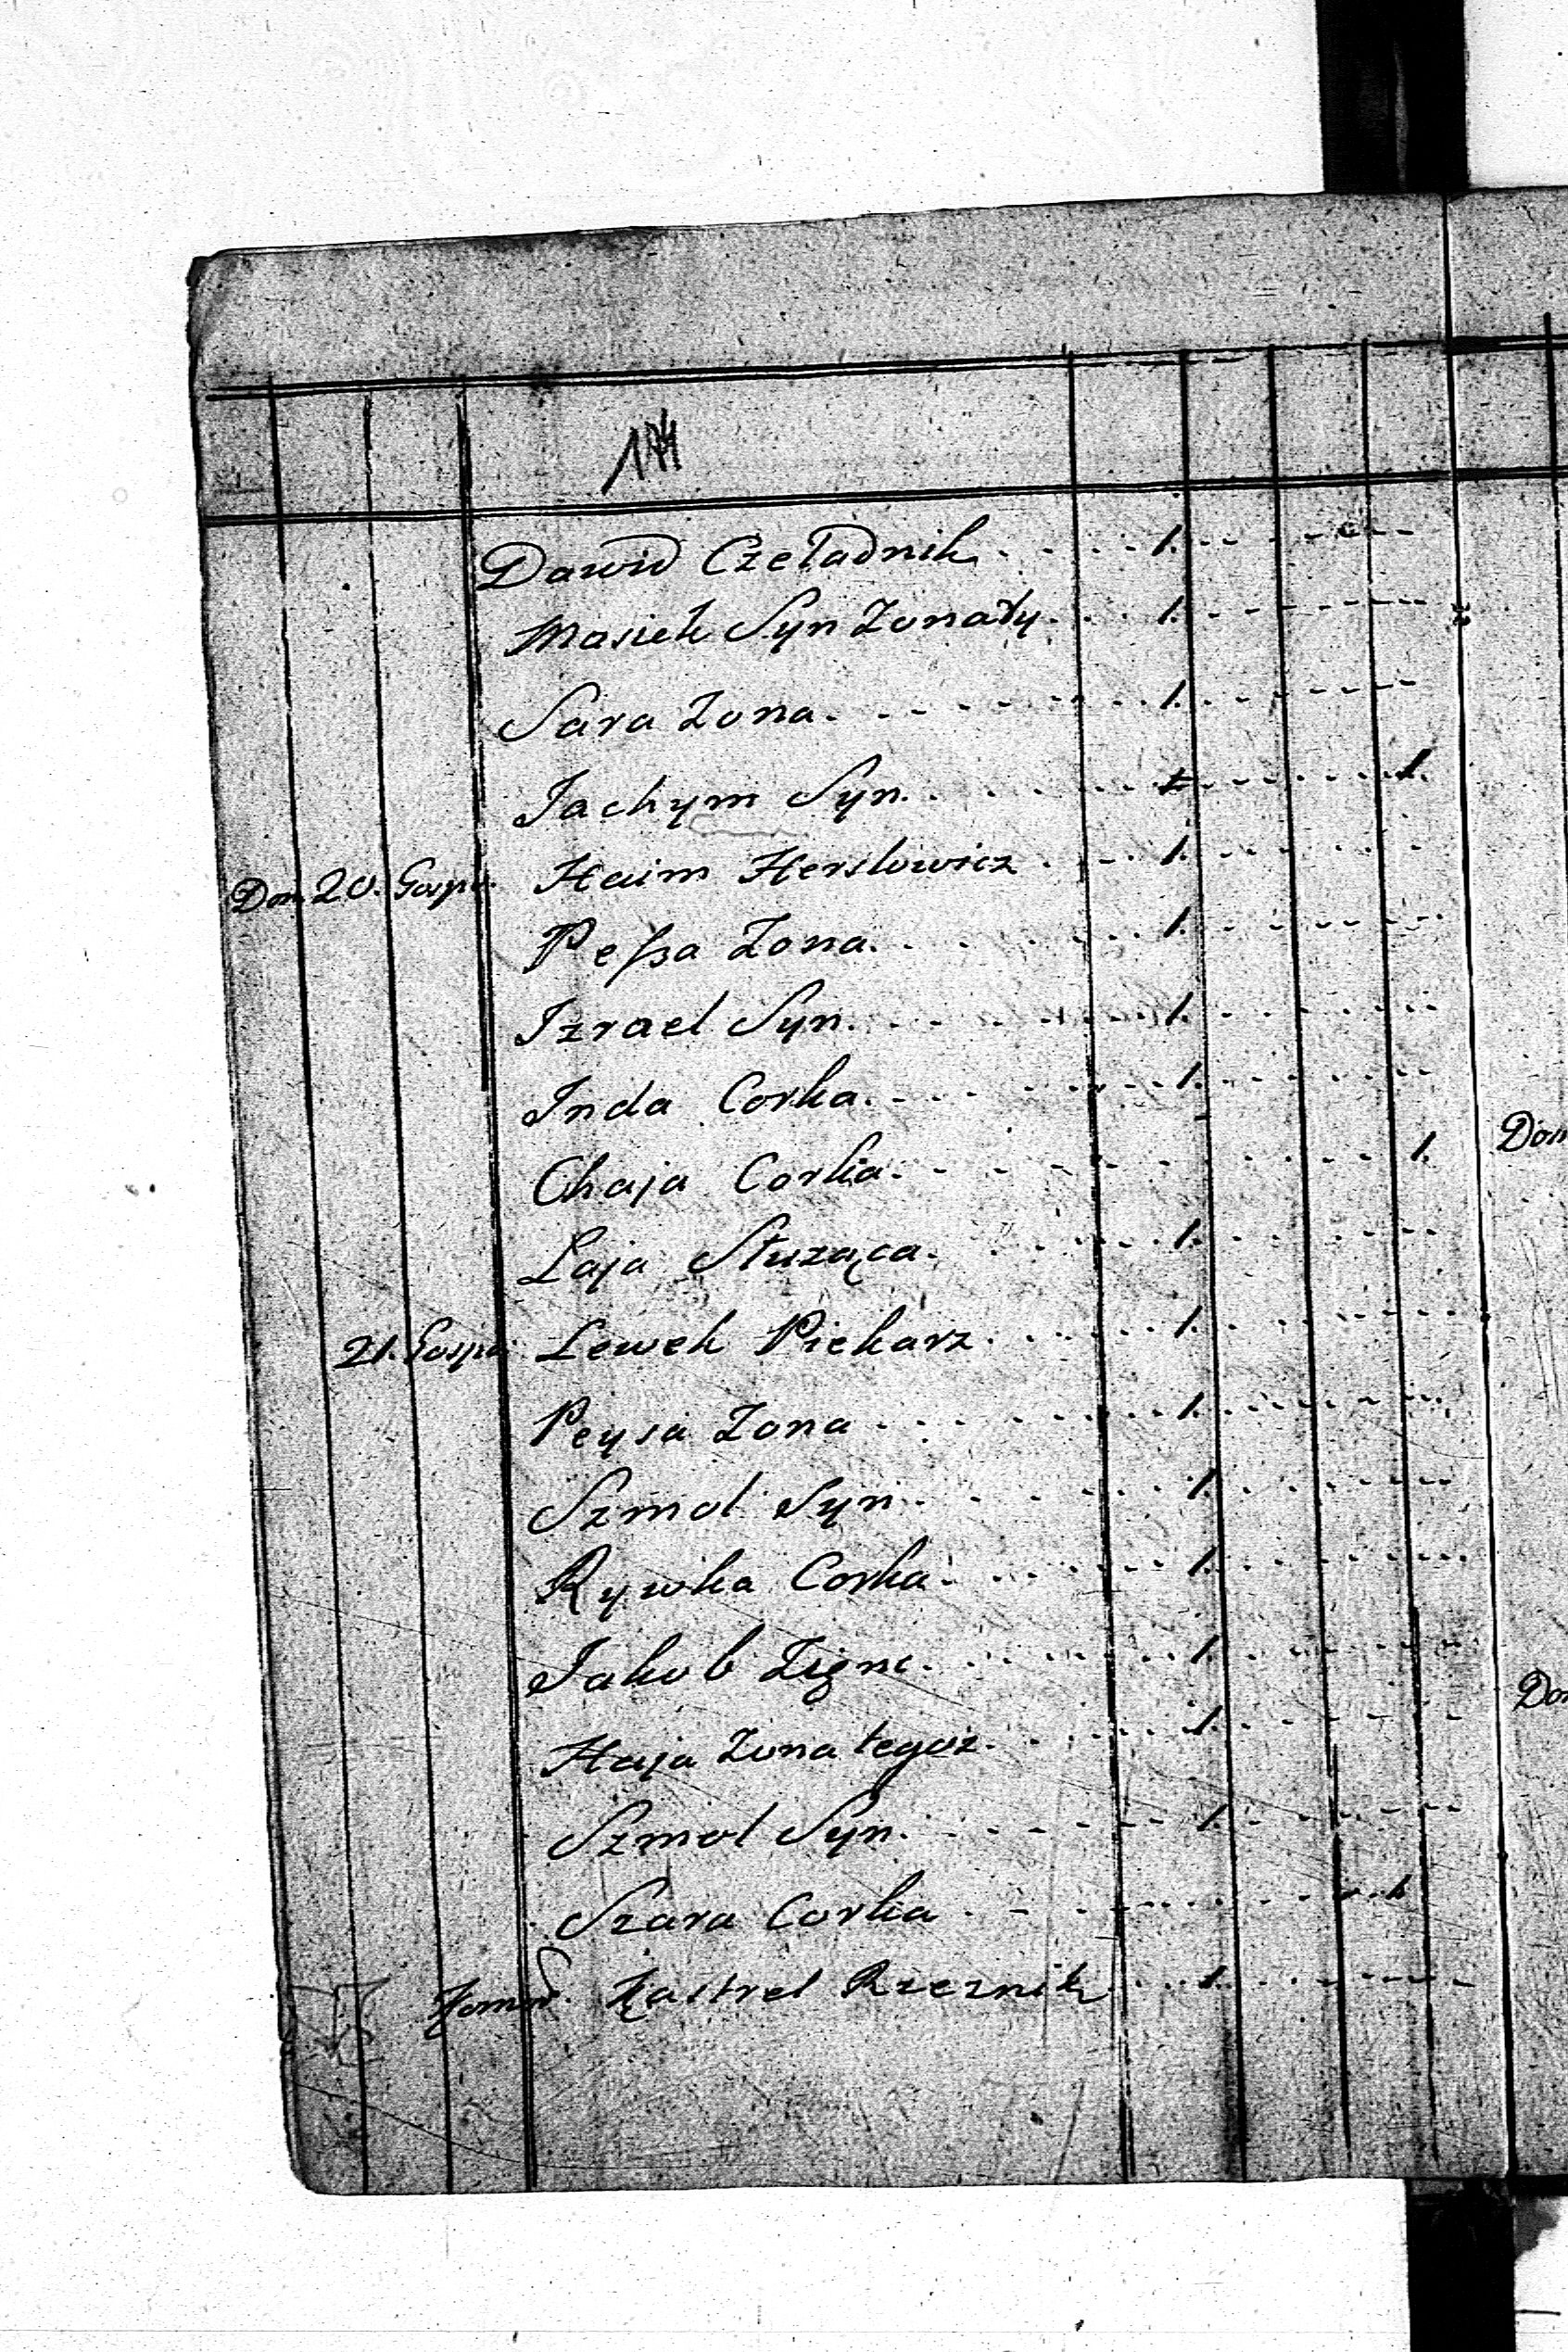 Dawid Czeladnik. 1.
Mosiek Syn Zonaty. 1.
Sara Zona. 1.
Jachym Syn. 1.
Dom 20. Gosp. Haim Herslowicz 1.
Peſsa Zona. 1.
Izrael Syn. 1.
Inda Corka. 1.
Chaja Corka. 1.
Laja Słuząca. 1.
21. Gospo. Lewek Piekarz. 1.
Peysa Zona 1.
Szmol Syn. 1.
Rywka Corka. 1.
Jakob Zięnc. 1.
Haja Zona tegoz. 1.
Szmol Syn. 1.
Szara Corka. 1
Kom. Rzeznik 1.
Dom
Dom